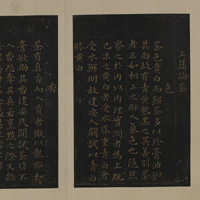 上篇論茶
色
茶色貴白而餅茶多以珍膏油
其面故有青黃紫黑之異善別茶
者正如相工之視人氣色也隱然
察之於內以肉理實潤者為上既
已末之黃白者受水昏重青白者
受水鮮明故建安人鬭試以青白
勝黃白
香
茶有真香而入貢者微以龍腦和
膏欲助其香建安民間試茶皆不
入香恐奪其真若烹點之際又雜